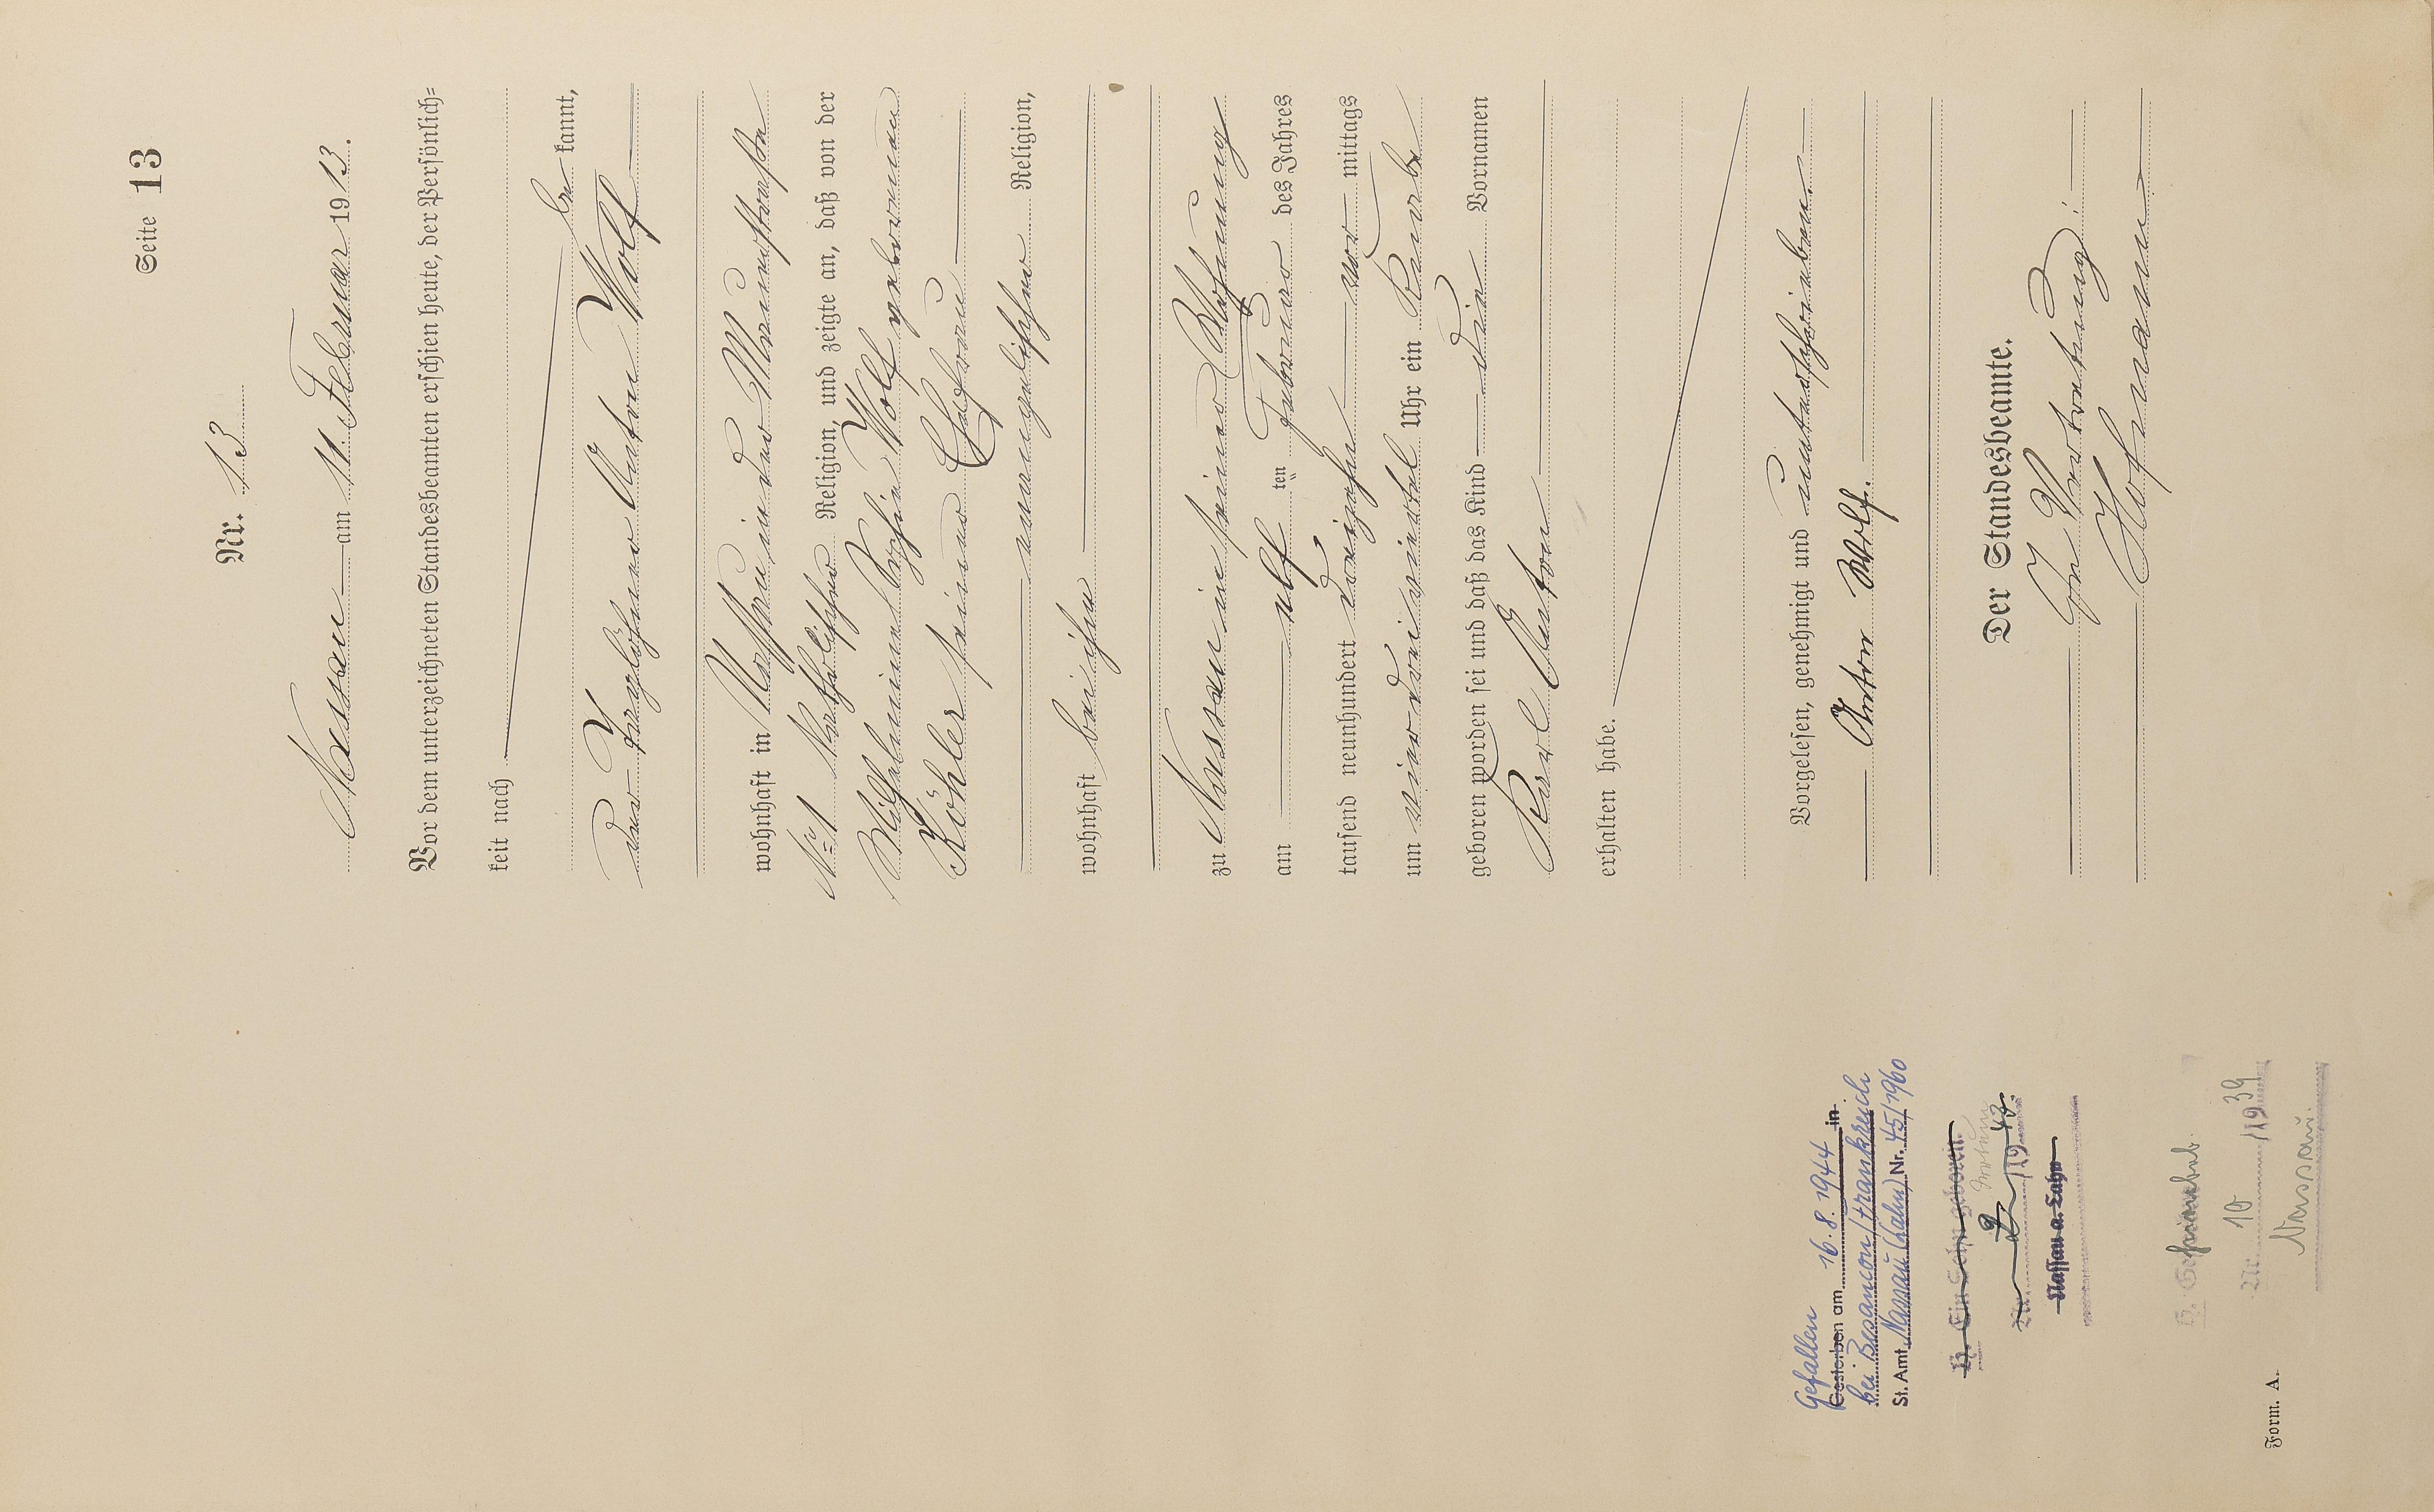 Seite 13
Nr. 13
Nassau am 11. Februar 1913.
Vor dem unterzeichneten Standesbeamten erschien heute, der Persönlich=
keit nach
be kannt,
der Taglöhner Anton Wolf
wohnhaft in Nassau in der Neustraße
No 1 katholischer Religion, und zeigte an, daß von der
Wilhelmine Sophie Wolf geborenen
Köhler seiner Ehefrau
evangelischer Religion,
wohnhaft bei ihm
zu Nassau in seiner Wohnung
am elf ten Februar des Jahres
tausend neunhundert dreizehn vor mittags
um vier dreiviertel Uhr ein Knabe
geboren worden sei und daß das Kind die Vornamen
Karl Anton
erhalten habe.
Vorgelesen, genehmigt und unterschrieben.
Anton Wolf.
Der Standesbeamte.
In Vertretung:
Hofmann
Gefallen
Gestorben am 16.8.1944 in
bei Besancon/Frankreich
St. Amt Nassau (Lahn) Nr. 45/1960
Ein Sohn geboren
Nr. 2 /1943.
Nassau a. Lahn
Nr. 10 /1939
Nassau.
Form. A.